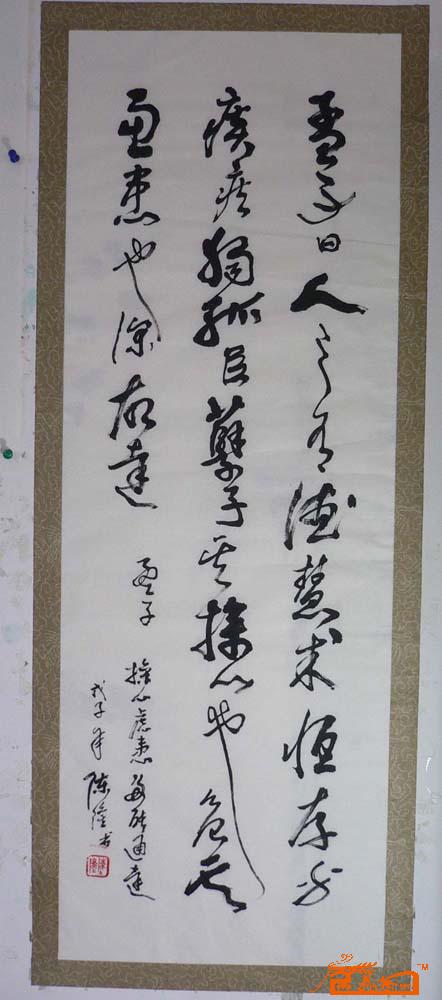 孟子曰人之有德慧术恒存乎
疢疾獨孤臣孽子其操心也危其
慮患也深故達 孟子
操心慮患 能通達
戊子年 陈书